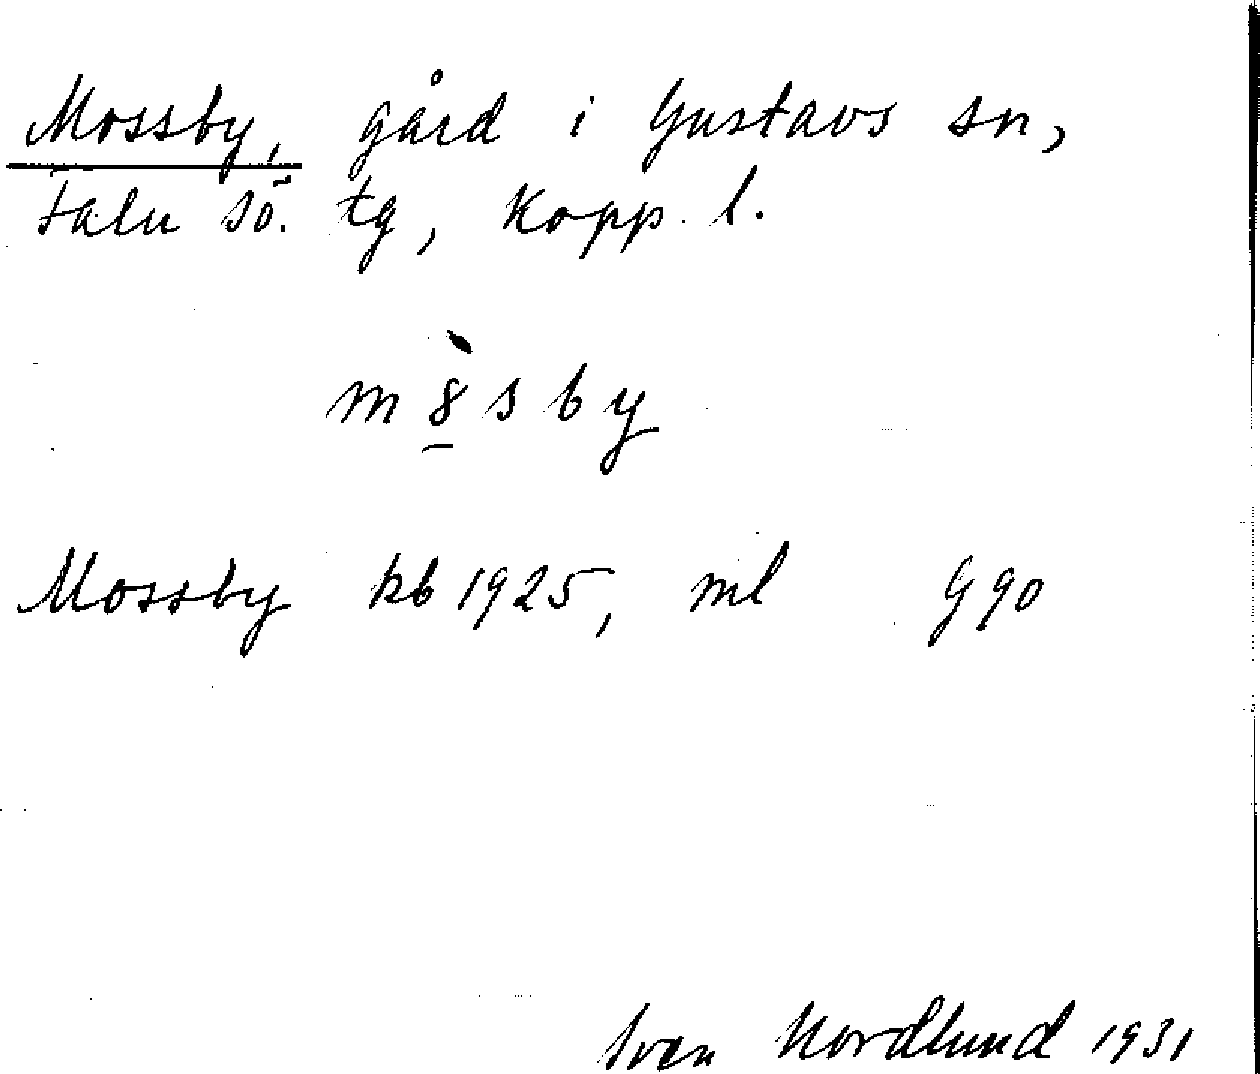 Mossby, gård i Gustavs sn,
Falu sö. tg, Kopp. l.
m8̠̀sby
Mossby kb 1925, ml G 90
Sven Nordlund 1931